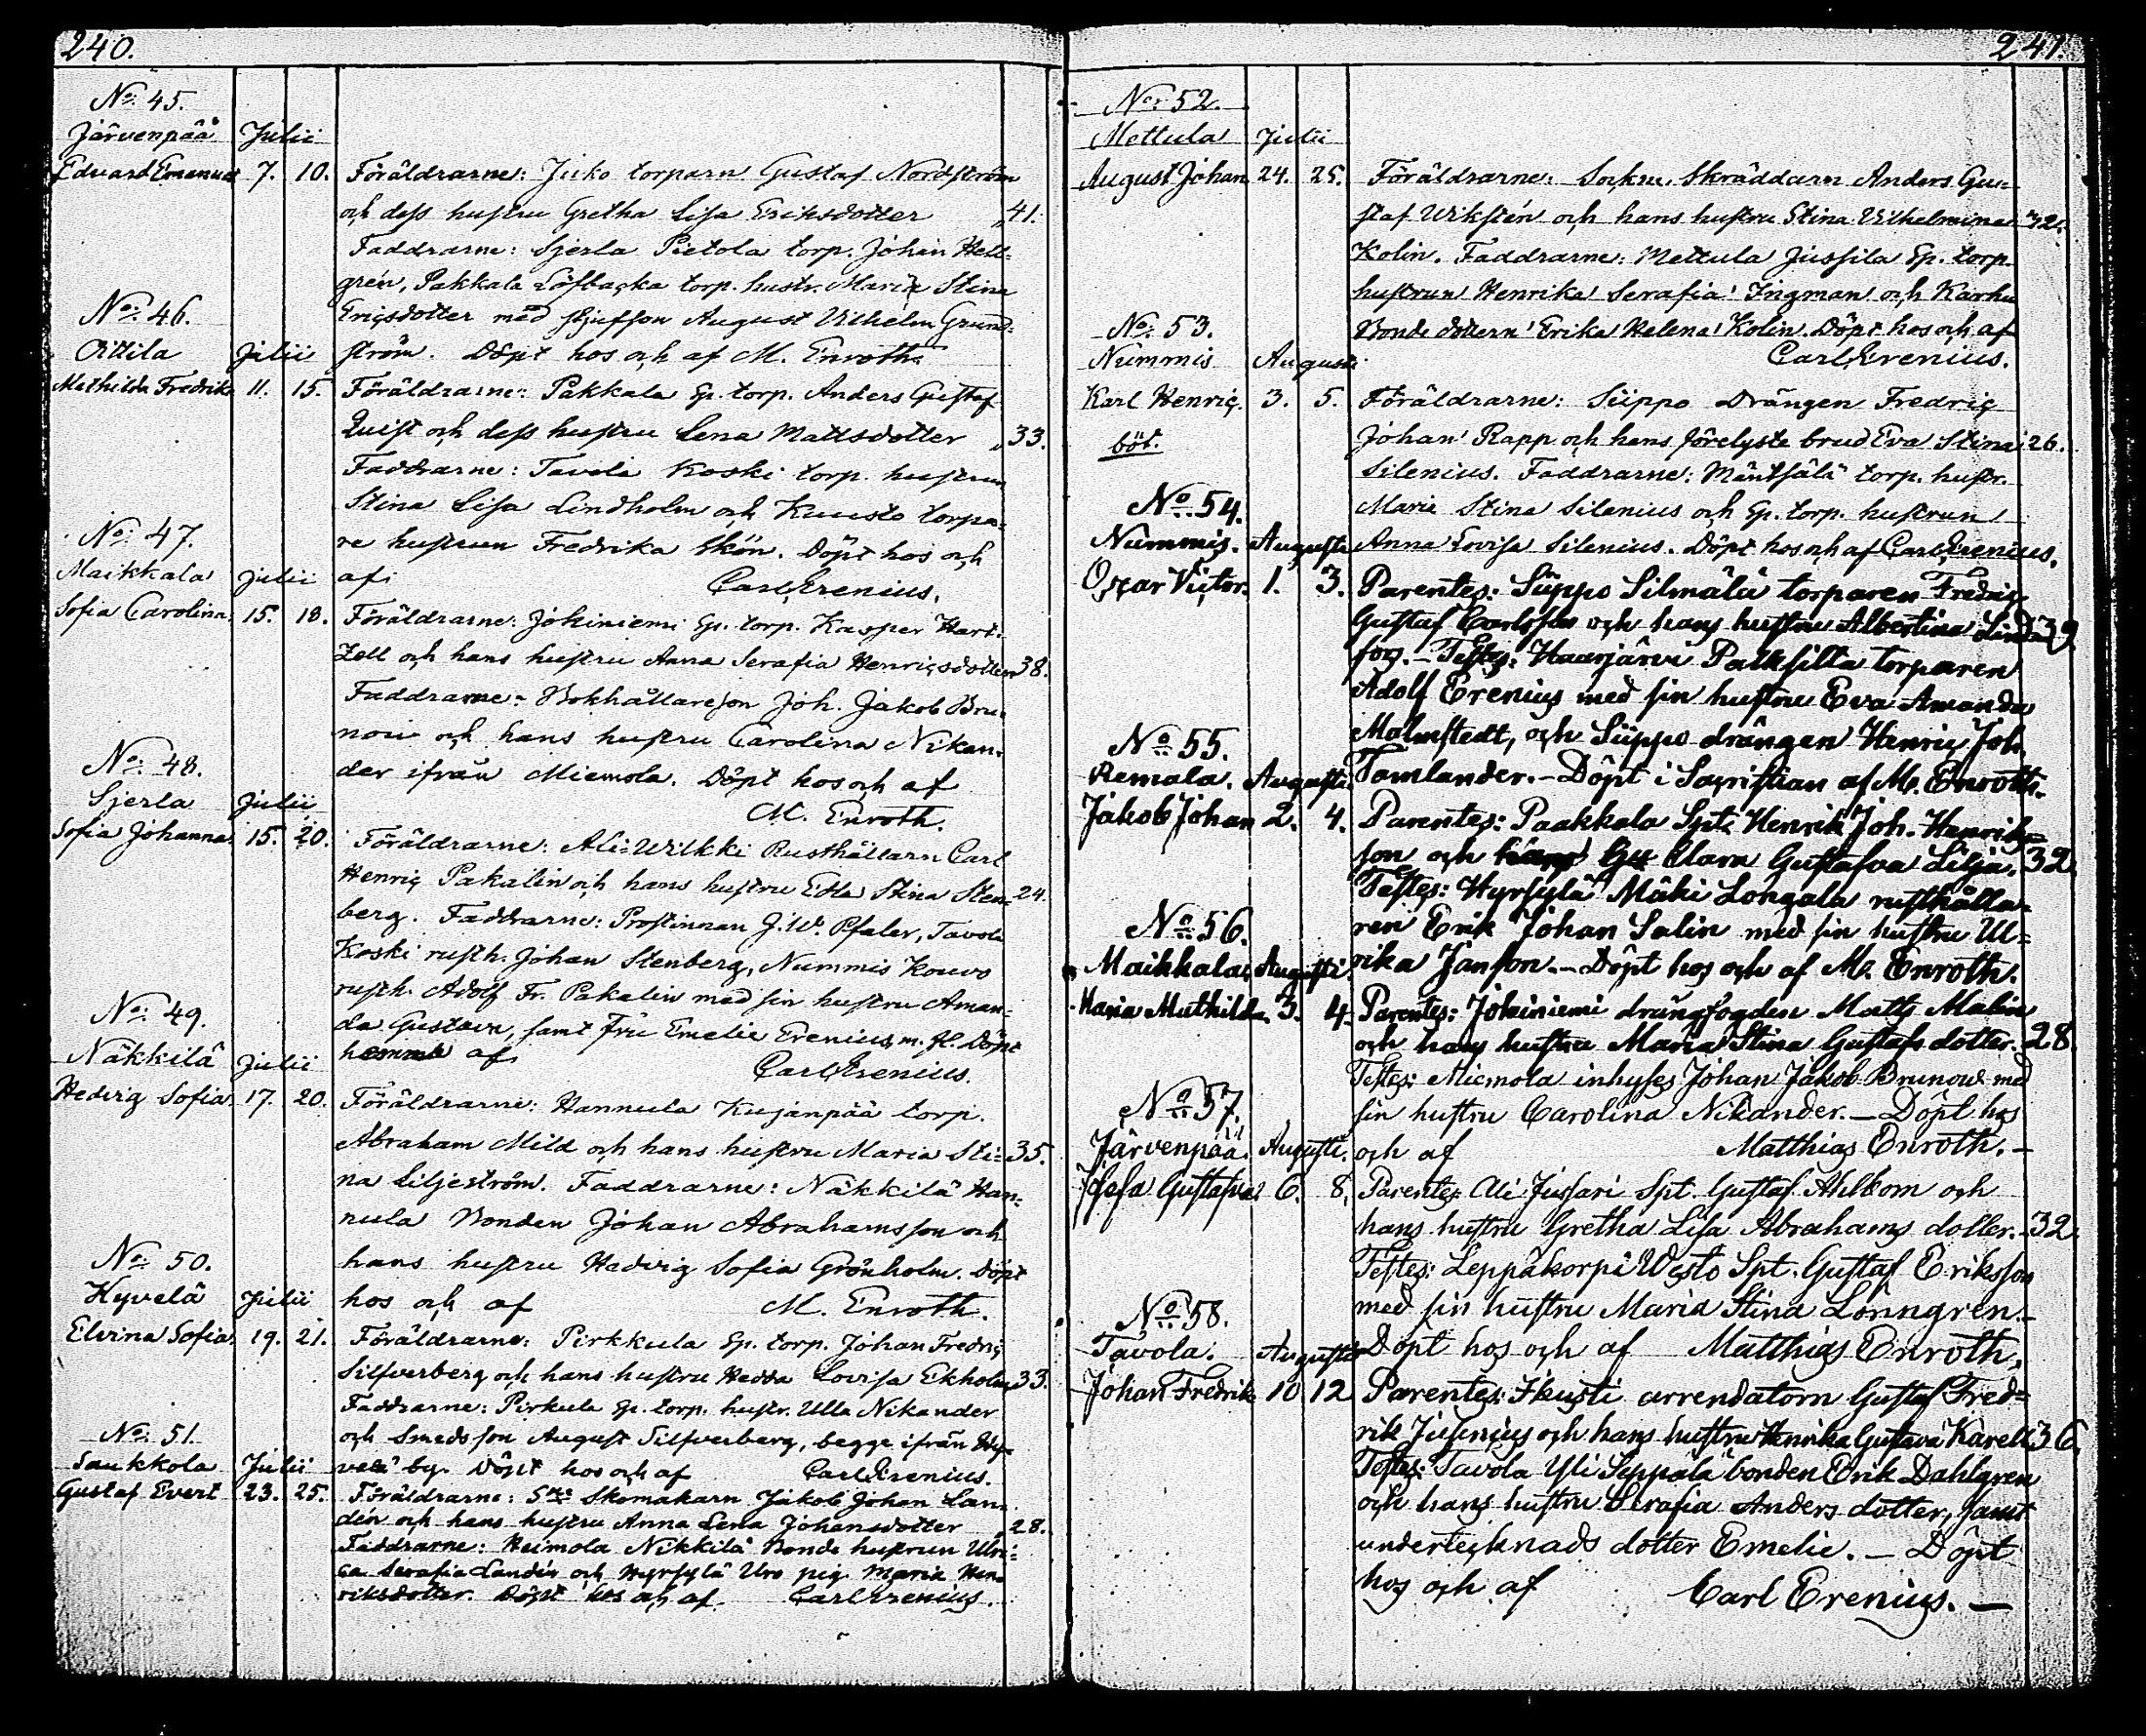 240.
No. 45.
Järvenpää Julii
Eduard Emanuel 7. 10. Föräldrarne: Juko torparn Gustaf Nordström
och dess hustru Gretha Lisa Eriksdotter 41.
Faddrarne: Sjerla Pietola torp. Johan Hell-
grén, Pakkala Löfbacka torp. hustr. Maria Stina
Ericsdotter med styfson August Vilhelm Grund-
ström. Döpt hos och af M. Enroth.
No. 46.
Oittila Julii
Mathilda Fredrika 11. 15. Föräldrarne: Pakkala Sp. torp. Anders Gustaf
Quist och dess hustru Lena Mattsdotter 33.
Faddrarne: Tavola Koski torp. hustrun
Stina Lisa Lindholm och Kuusto torpa-
re hustrun Fredrika Skön. Döpt hos och
af Carl Erenius.
No. 47.
Maikkala Julii
Sofia Carolina. 15. 18. Föräldrarne: Johiniemi Sp. torp. Kasper Hart-
zell och hans hustru Anna Serafia Henricsdotter 38.
Faddrarne: Bokhållareson Joh. Jakob Bru-
nou och hans hustru Carolina Nikan-
der ifrån Miemola. Döpt hos och af
M. Enroth.
No. 48.
Sjerla Julii
Sofia Johanna. 15. 20. Föräldrarne: Ali-Wilkki Rusthållarn Carl
Henric Pakalin och hans hustru Edla Stina Sten- 24.
berg. Faddrarne: Prostinnan J. W. Pfaler, Tavola
Koski rusth. Johan Stenberg, Nummis Kouvo
rusth. Adolf Fr. Pakalin med sin hustru Aman-
da Gustava, samt fru Emelie Erenius m. fl. Döpt
hemma af Carl Erenius.
No. 49.
Näkkilä Julii
Hedvig Sofia. 17. 20. Föräldrarne: Hannula Kujanpää torp.
Abraham Mild och hans hustru Maria Sti- 35.
na Liljeström. Faddrarne: Näkkilä Han-
nula Bonden Johan Abrahamsson och
hans hustru Hedvig Sofia Grönholm. Döpt
hos och af M. Enroth.
No. 50.
Hyvelä Julii
Elvina Sofia. 19. 21. Föräldrarne: Pirkkula Sp. torp. Johan Fredric
Silfverberg och hans hustru Hedda Lovisa Ekholm 33.
Faddrarne: Pirkula Sp. torp. hustr. Ulla Nikander
och Smedsson August Silfverberg, begge ifrån Hy-
velä by. Döpt hos och af Carl Erenius.
No. 51.
Saukkola Julii
Gustaf Evert 23. 25. Föräldrarne: Skomakarn Jakob Johan Lan-
dén och hans hustru Anna Lena Johansdotter 28.
Faddrarne: Heimola Nikkilä Bonde hustrun Ulri-
ca Serafia Landén och Hyrsylä Uro pig. Maria Hen-
riksdotter. Döpt hos och af Carl Erenius.
241.
No. 52.
Mettula Julii
August Johan 24. 25. Föräldrarne: Sockne Skräddarn Anders Gu-
staf Wikstén och hans hustru Stina Vilhelmina 32.
Kolin. Faddrarne: Mettula Jussila Sp. torp.
hustrun Henrika Serafia Ingman och Karhu
Bonde dottern Erika Helena Kolin. Döpt hos och af
Carl Erenius.
No. 53.
Nummis Augusti
Karl Henric. 3. 5. Föräldrarne: Siippo Drängen Fredric
böt. Johan Rapp och hans förelyste brud Eva Stina 26.
Silenius. Faddrarne: Mäntsälä torp. hustr.
Maria Stina Silenius och Sp. torp. hustrun
Anna Lovisa Silenius. Döpt hos och af Carl Erenius.
No. 54.
Nummis. Augusti
Oscar Victor. 1. 3. Parentes: Siippo Silmälä torparen Fredric
Gustaf Carlsson och hans hustru Albertina Lind- 39
fors. — Testes: Haarjärvi Palksilta torparen
Adolf Erenius med sin hustru Eva Amanda
Malmstedt, och Siippo drängen Henric Joh.
Tamlander. — Döpt i Sacristian af M. Enroth.
No. 55.
Remala. Augusti
Jakob Johan 2. 4. Parentes: Paakkala Spt. Henrik Joh. Henriks-
son och Clara Gustafva Lilja. 32.
Testes: Hyrsylä Mäki Longala rusthålla-
ren Erik Johan Salin med sin hustru Ul-
rika Janson. — Döpt hos och af M. Enroth.
No. 56.
Maikkala. Augusti.
Maria Mathilda. 3. 4. Parentes: Johiniemi drängfogden Matts Malin
och hans hustru Maria Stina Gustafs dotter. 28.
Testes: Miemola inhyses Johan Jakob Brunow med
sin hustru Carolina Nikander. — Döpt hos
och af Matthias Enroth. —
No. 57.
Järvenpää. Augusti.
Josefa Gustafva 6. 8. Parentes Ali Jussari Spt. Gustaf Ahlbom och
hans hustru Gretha Lisa Abrahams dotter. 32.
Testes: Leppäkorpi Westo Spt. Gustaf Eriksson
med sin hustru Maria Stina Lönngren. —
Döpt hos och af Matthias Enroth.
No. 58.
Tavola. Augusti
Johan Fredrik 10 12 Parentes: Skusti arrendatorn Gustaf Fred-
rik Jusenius och hans hustru Henrika Gustava Karell 36.
Testes: Tavola Yli Seppälä bonden Erik Dahlgren
och hans hustru Serafia Anders dotter, samt
undertecknads dotter Emelie. — Döpt
hos och af Carl Erenius. —